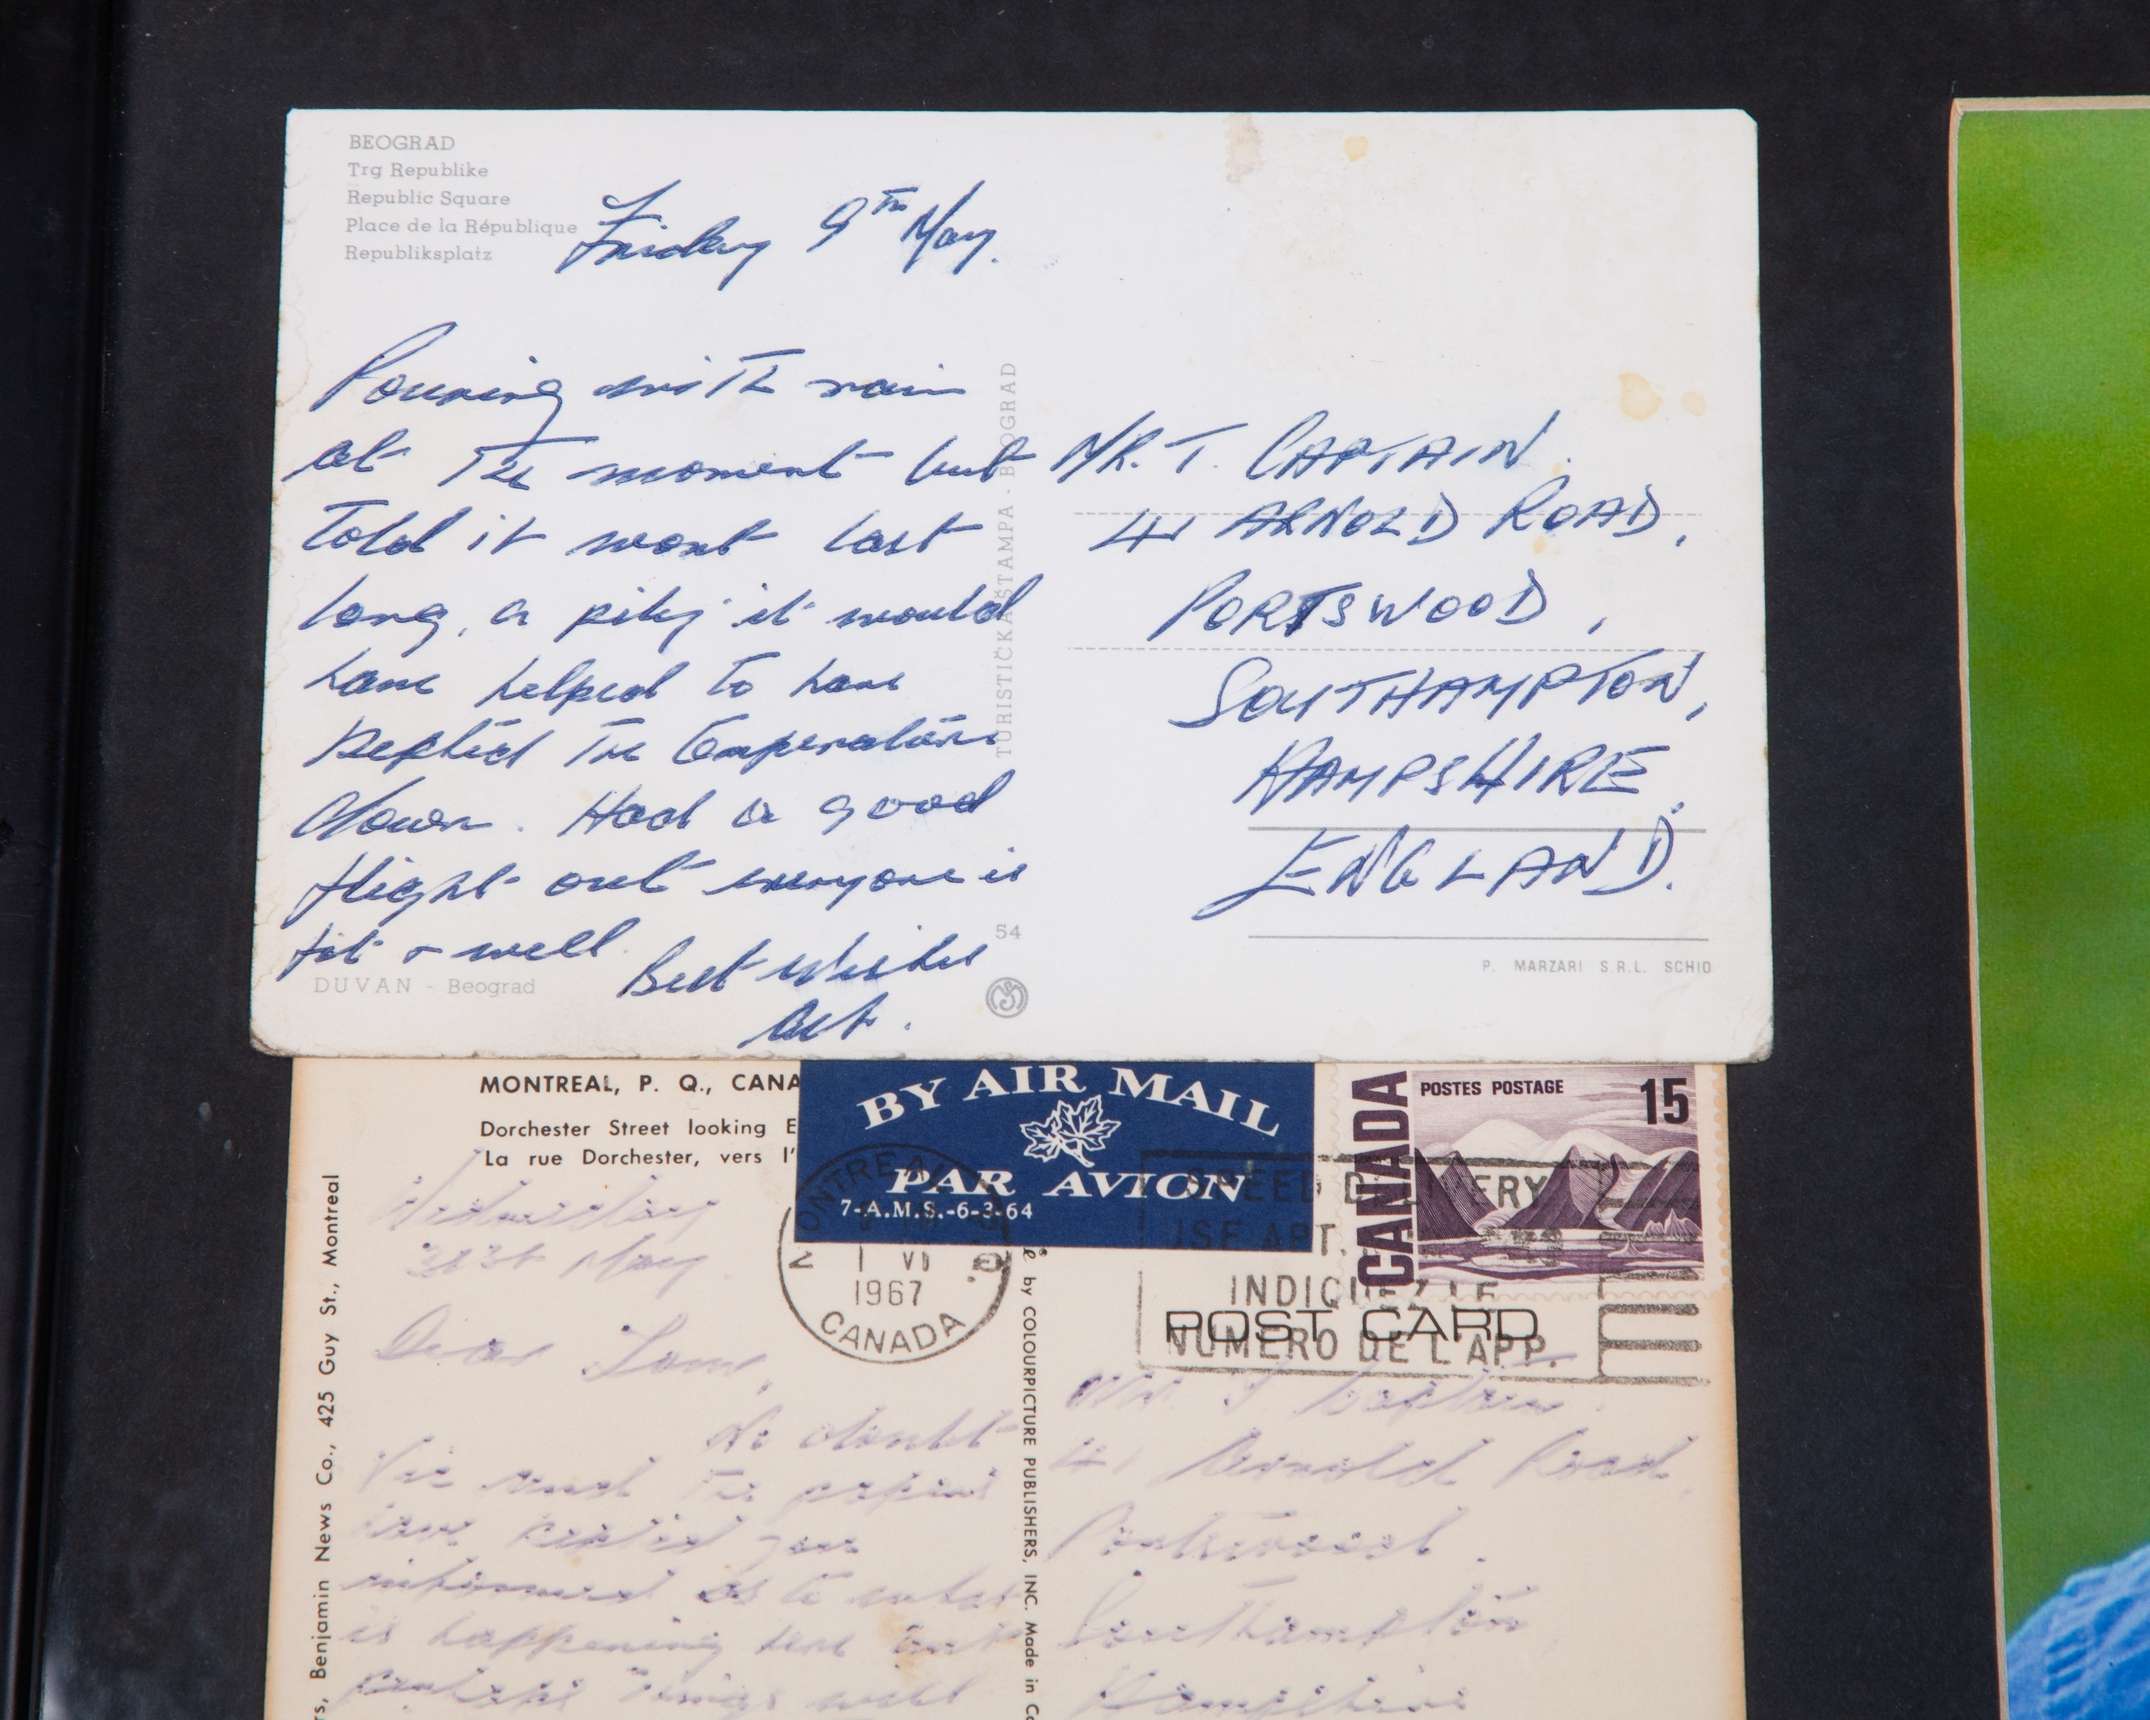 BEOGRAD
Trg Republike
Republic Square
Place de la République
Republiksplatz
Friday 9TH May.
Pouring with rain
at The moment but
Told it wont last
long, a pity it would
have helped to have
Keptied The Temperature
down. Had a good
flight out everyone is
fit & well.
Best Wishes
Art.
DUVAN - Beograd
TURISTIČKA ŠTAMPA - BEOGRAD
54
MR. T. CAPTAIN.
41 ARNOLD ROAD,
PORTSWOOD,
SOUTHAMPTON,
HAMPSHIRE.
ENGLAND.
P. MARZARI S.R.L. SCHIO
MONTREAL, P. Q., CANA
Dorchester Street looking E
La rue Dorchester, vers l'
BY AIR MAIL
PAR AVION
7-A.M.S.-6-3-64
CANADA
POSTES POSTAGE
15
MONTREAL
1 VI
1967
CANADA
SPEED DELIVERY
USE APT.
INDIQUEZ LE
NUMERO DE L'APP.
POST CARD
Benjamin News Co., 425 Guy St., Montreal
by COLOURPICTURE PUBLISHERS, INC. Made in
Wednesday
31st May.
Dear Tom,
No doubt
The papers
have you
informed as to what
is happening here but
perhaps Things will
Mr. T Captain.
41 Arnold Road,
Portswood.
Southampton
Hampshire